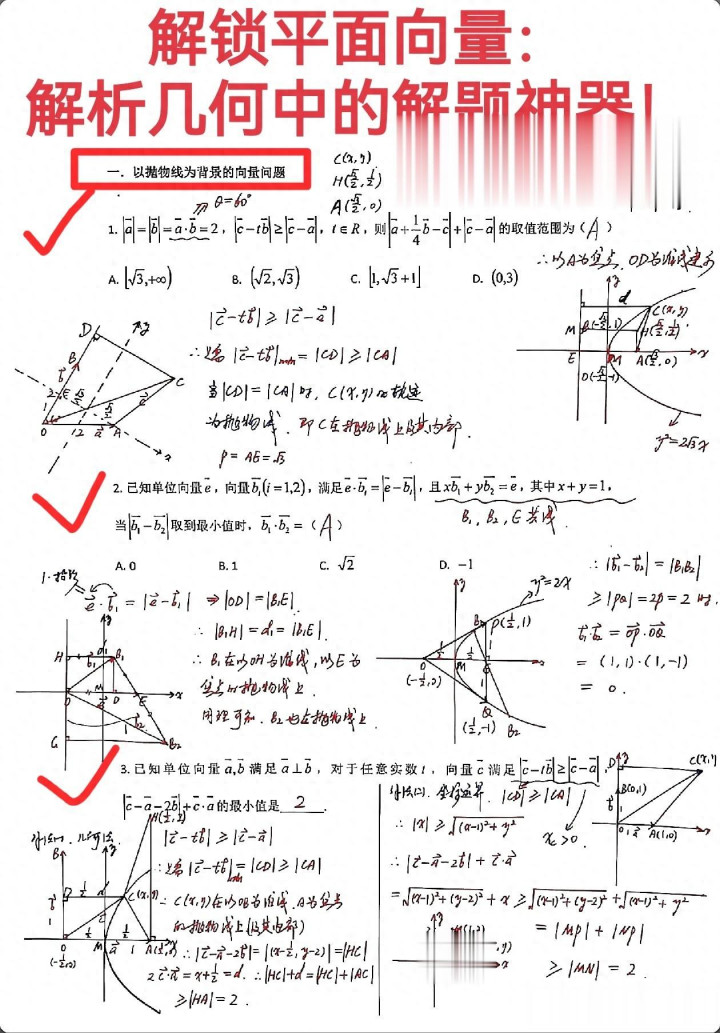 解锁平面向量:
解析几何中的解题神器!
一. 以抛物线为背景的向量问题
C(x,y)
H(√3/2, 1/2)
A(√3/2, 0)
θ=60°
1. |a|=|b|=a·b=2，|c-tb|≥|c-a|，t∈R，则|a+1/4b-c|+|c-a|的取值范围为（A）
A. [√3,+∞) B. (√2,√3) C. [1,√3+1] D. (0,3)
∴以A为焦点、OD为准线建系
|c-tb|≥|c-a|
|c-tb|min=|CD|≥|CA|
当|CD|=|CA|时，C(x,y)的轨迹
为抛物线．即C在抛物线上及其内部．
p=AE=√3
y²=2√3x
2. 已知单位向量e，向量b₁(i=1,2)，满足e·b₁=|e-b₁|，且xb₁+yb₂=e，其中x+y=1，
B₁,B₂,E共线．
当|b₁-b₂|取到最小值时，b₁·b₂=（A）
A. 0 B. 1 C. √2 D. -1
e·b₁=|e-b₁| ⇒|OD|=|B₁E|
∴|B₁H|=d₁=|B₁E|．
∴B₁在以OH为准线，以E为
焦点的抛物线上．
同理可知．B₂也在抛物线上
y²=2x
P(1/2,1)
(-1/2,0)
(1/2,-1)
∴|b₁-b₂|=|B₁B₂|
≥|PQ|=2p=2时．
b₁·b₂=OP·OQ
=(1,1)·(1,-1)
=0．
3. 已知单位向量a,b满足a⊥b，对于任意实数t，向量c满足|c-tb|≥|c-a|，
|c-a-2b|+c·a的最小值是 2
|c-tb|≥|c-a|
|c-tb|min=|CD|≥|CA|
∴C(x,y)在以OB为准线、A为焦点
的抛物线上(及其内部)
∴|c-a-2b|=|(x-1/2,y-2)|=|HC|
c·a=x+1/2=d．∴|HC|+d=|HC|+|AC|
≥|HA|=2．
|CD|≥|CA|
∴|x|≥√((x-1)²+y²)
x_C>0．
∴|c-a-2b|+c·a
=√((x-1)²+(y-2)²)+x≥√((x-1)²+(y-2)²)+√((x-1)²+y²)
=|MP|+|NP|
≥|MN|=2．
C(x,y)
B(0,1)
A(1,0)